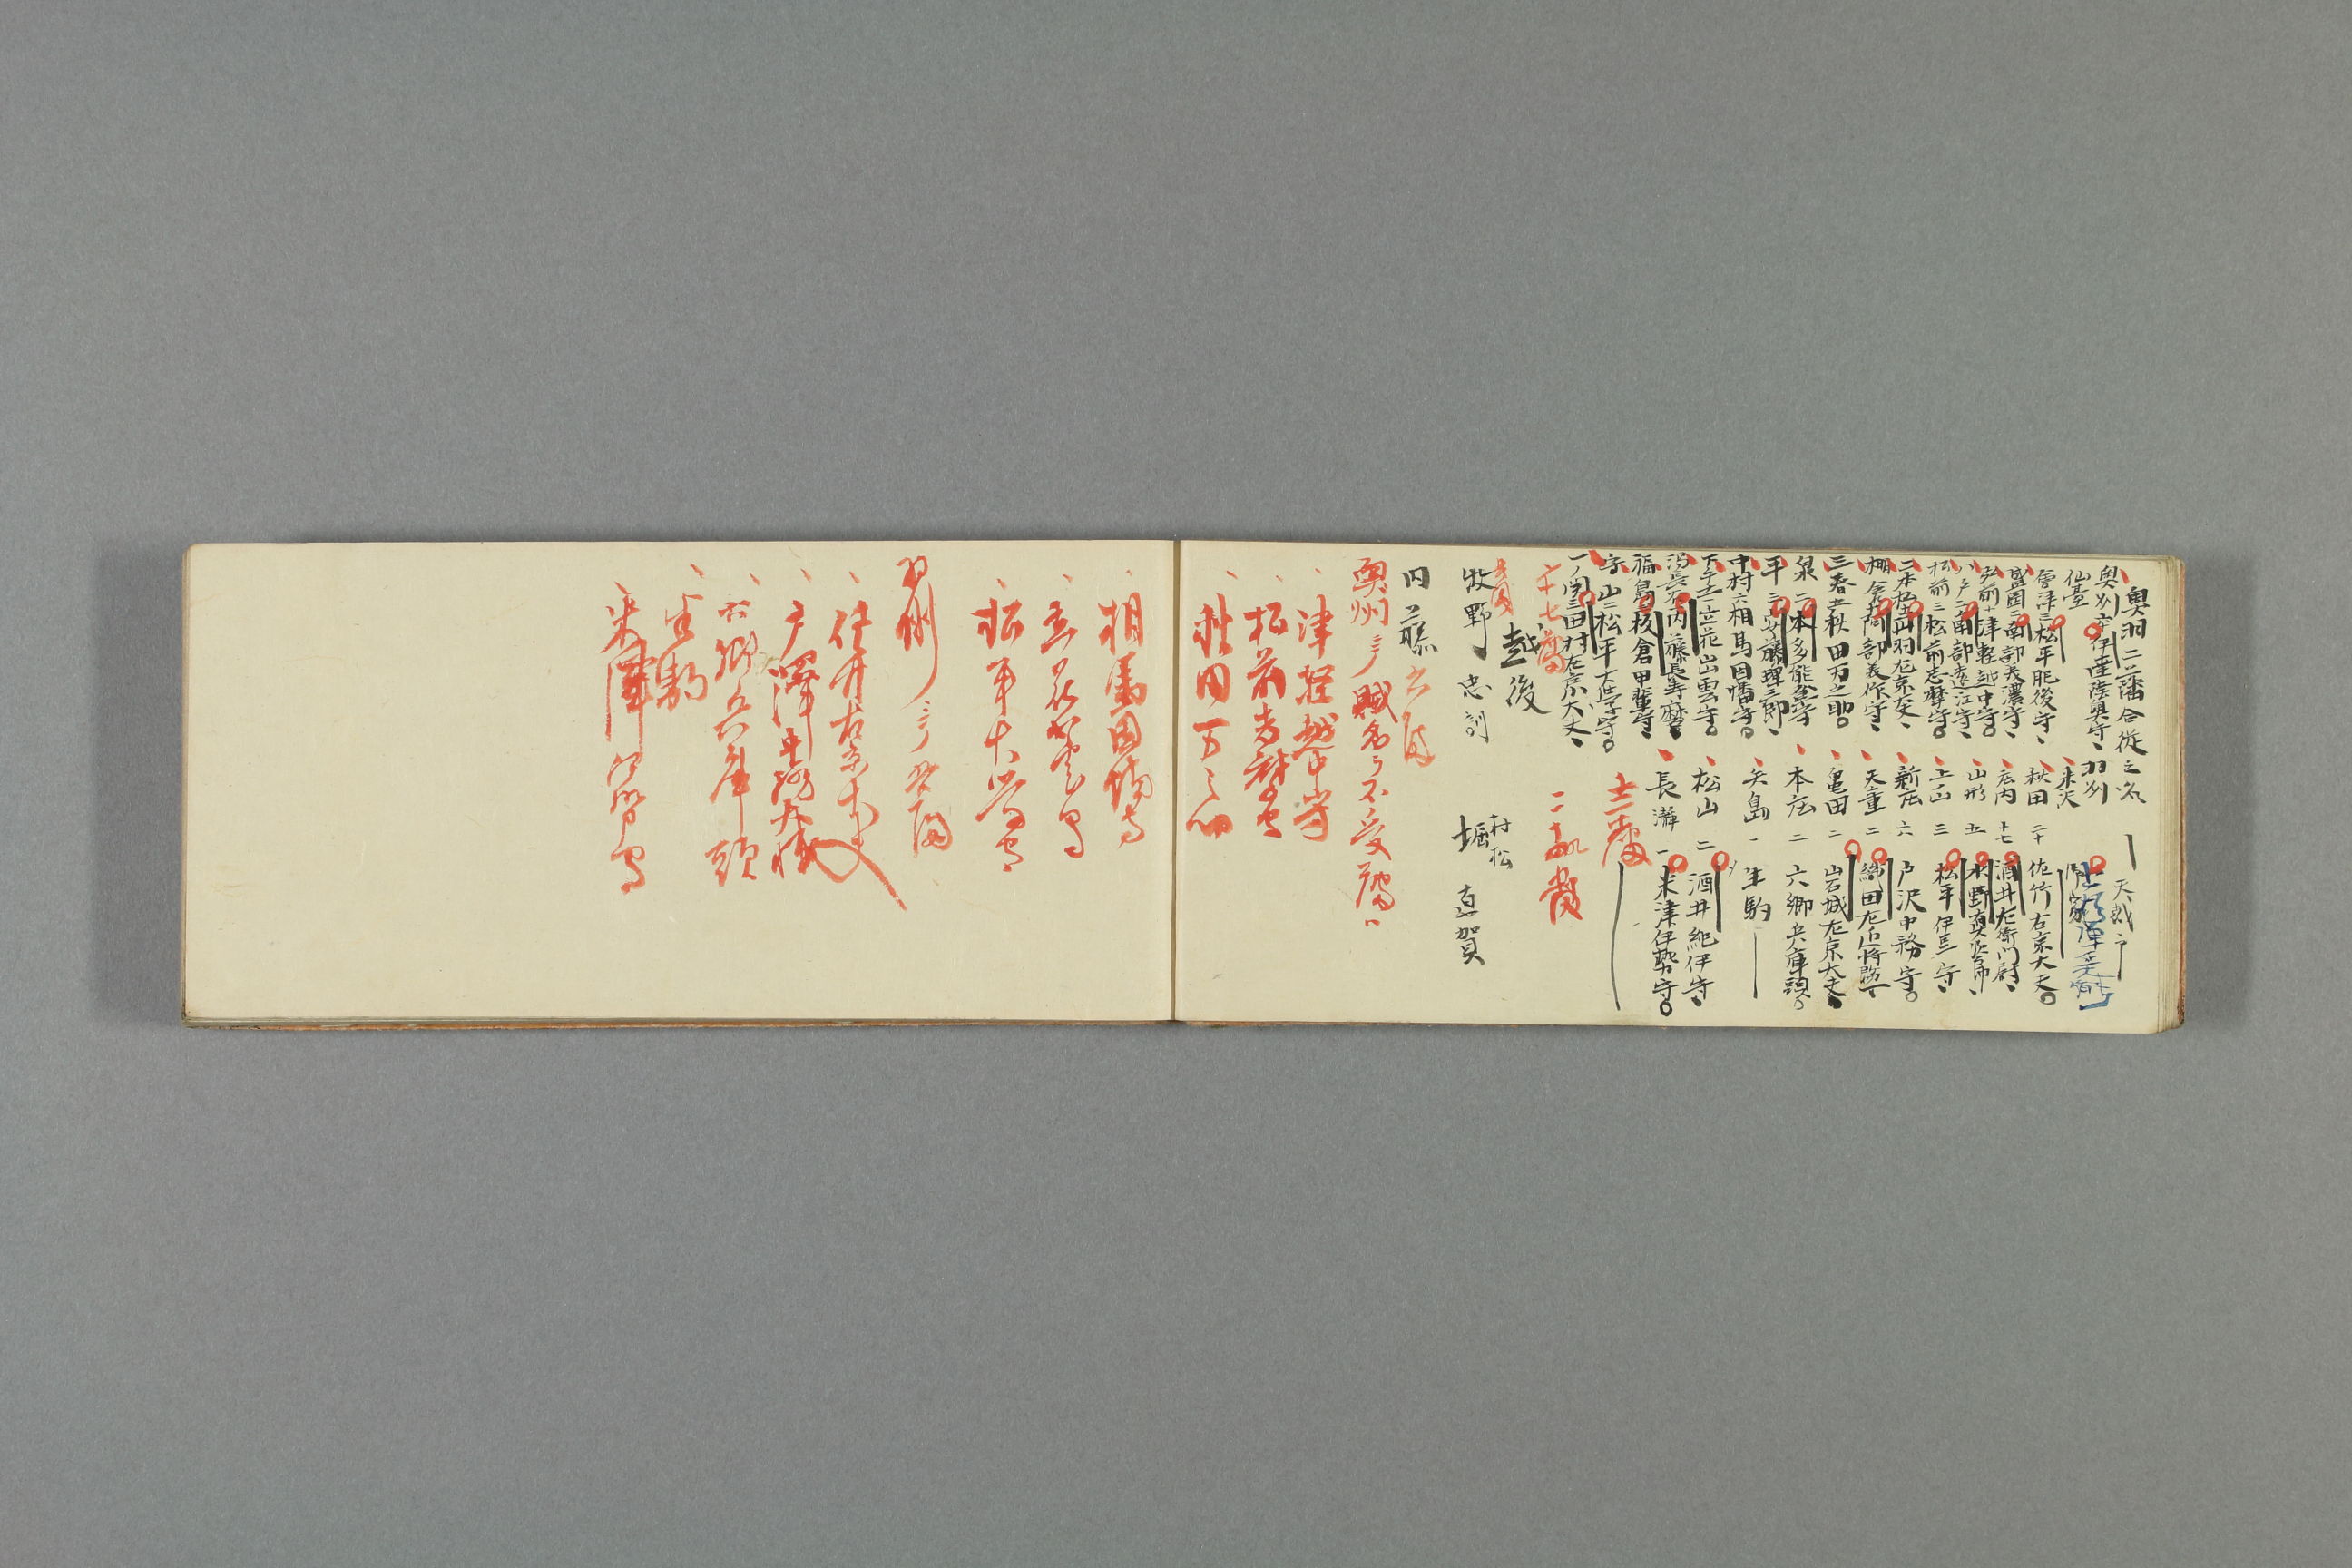 奥羽二藩合従之次
天裁
奥州
仙臺 伊達陸奥守
會津 三 松平肥後守
盛岡 二 南部美濃守
弘前 十 津軽越中守
八戸 二 南部遠江守
松前 三 松前志摩守
二本松 丹羽左京大夫
棚倉 阿部美作守
三春 五 秋田万之助
泉 二 本多能登守
平 三 安藤理三郎
中村 六 相馬因幡守
下手 立花出雲守
湯長谷 内藤長寿麿
福島 板倉甲斐守
守山 二 松平大学守
一ノ関 三 田村左京大夫
羽州
米沢
秋田 二十 佐竹右京大夫
庄内 十七 酒井左衛門尉
山形 五 水野真次郎
上山 三 松平伊豆守
新庄 六 戸沢中務守
天童 二 織田左近将監
亀田 二 岩城左京大夫
本庄 二 六郷兵庫頭
矢島 一 生駒
松山 二 酒井紀伊守
長瀞 一 米津伊勢守
十七藩
十二藩
越後
牧野 忠訓
村松
堀 直賀
内藤
奥州ニテ賊名ヲ不受藩ハ
津軽越中守
松前志摩守
秋田万之助
相馬因幡守
立花出雲守
松平大学守
羽州ニテ
佐竹右京大夫
戸澤中務大輔
六郷兵庫頭
生駒
米津伊勢守